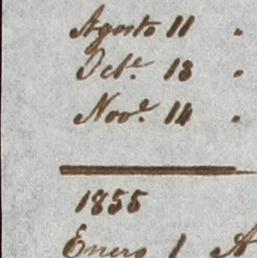 Agosto 11 .
Oct.e 13 .
Nov.e 14 .
1855
Enero 1 A